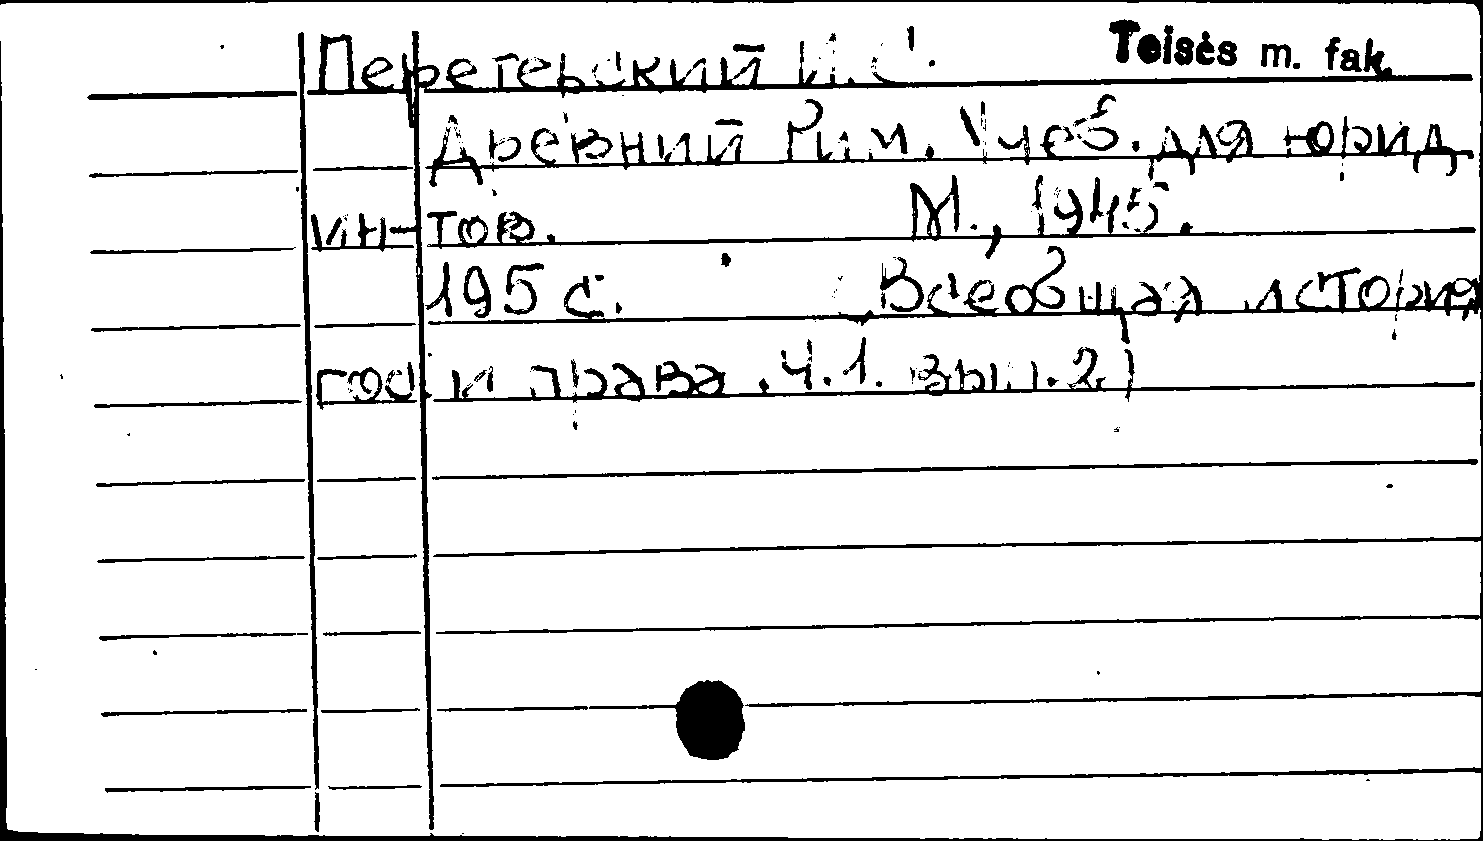 Перетерский И.С. Teisės m. fak.
Древний Рим. Учеб. для юрид.
ин-тов. М., 1945.
195 с. (Всеобщая история
гос. и права. Ч.1. вып.2)